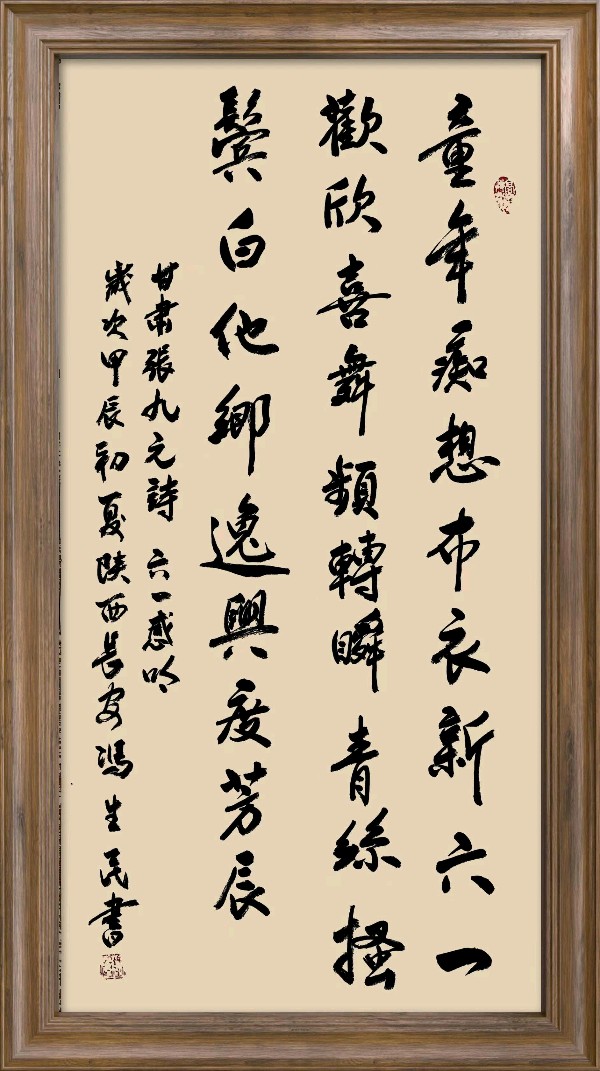 童年痴想布衣新六一
歡欣喜舞頻轉瞬青絲搔
鬓白他鄉逸興度芳辰
甘肅張九元詩 六一感吟
歲次甲辰初夏陝西長安馮生民書